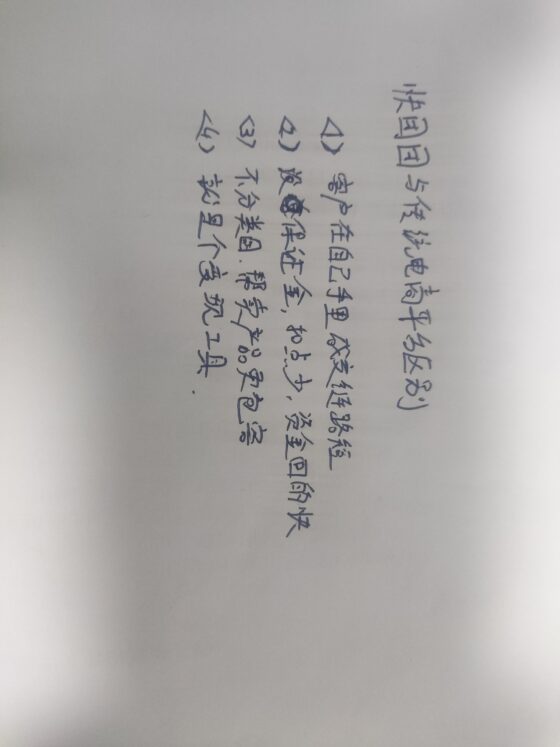 快团团与传统电商平台区别
<1> 客户在自己手里成交链路短
<2> 没有保证金，扣点少，资金回的快
<3> 不分类目，帮卖产品更包容
<4> 就是个变现工具.